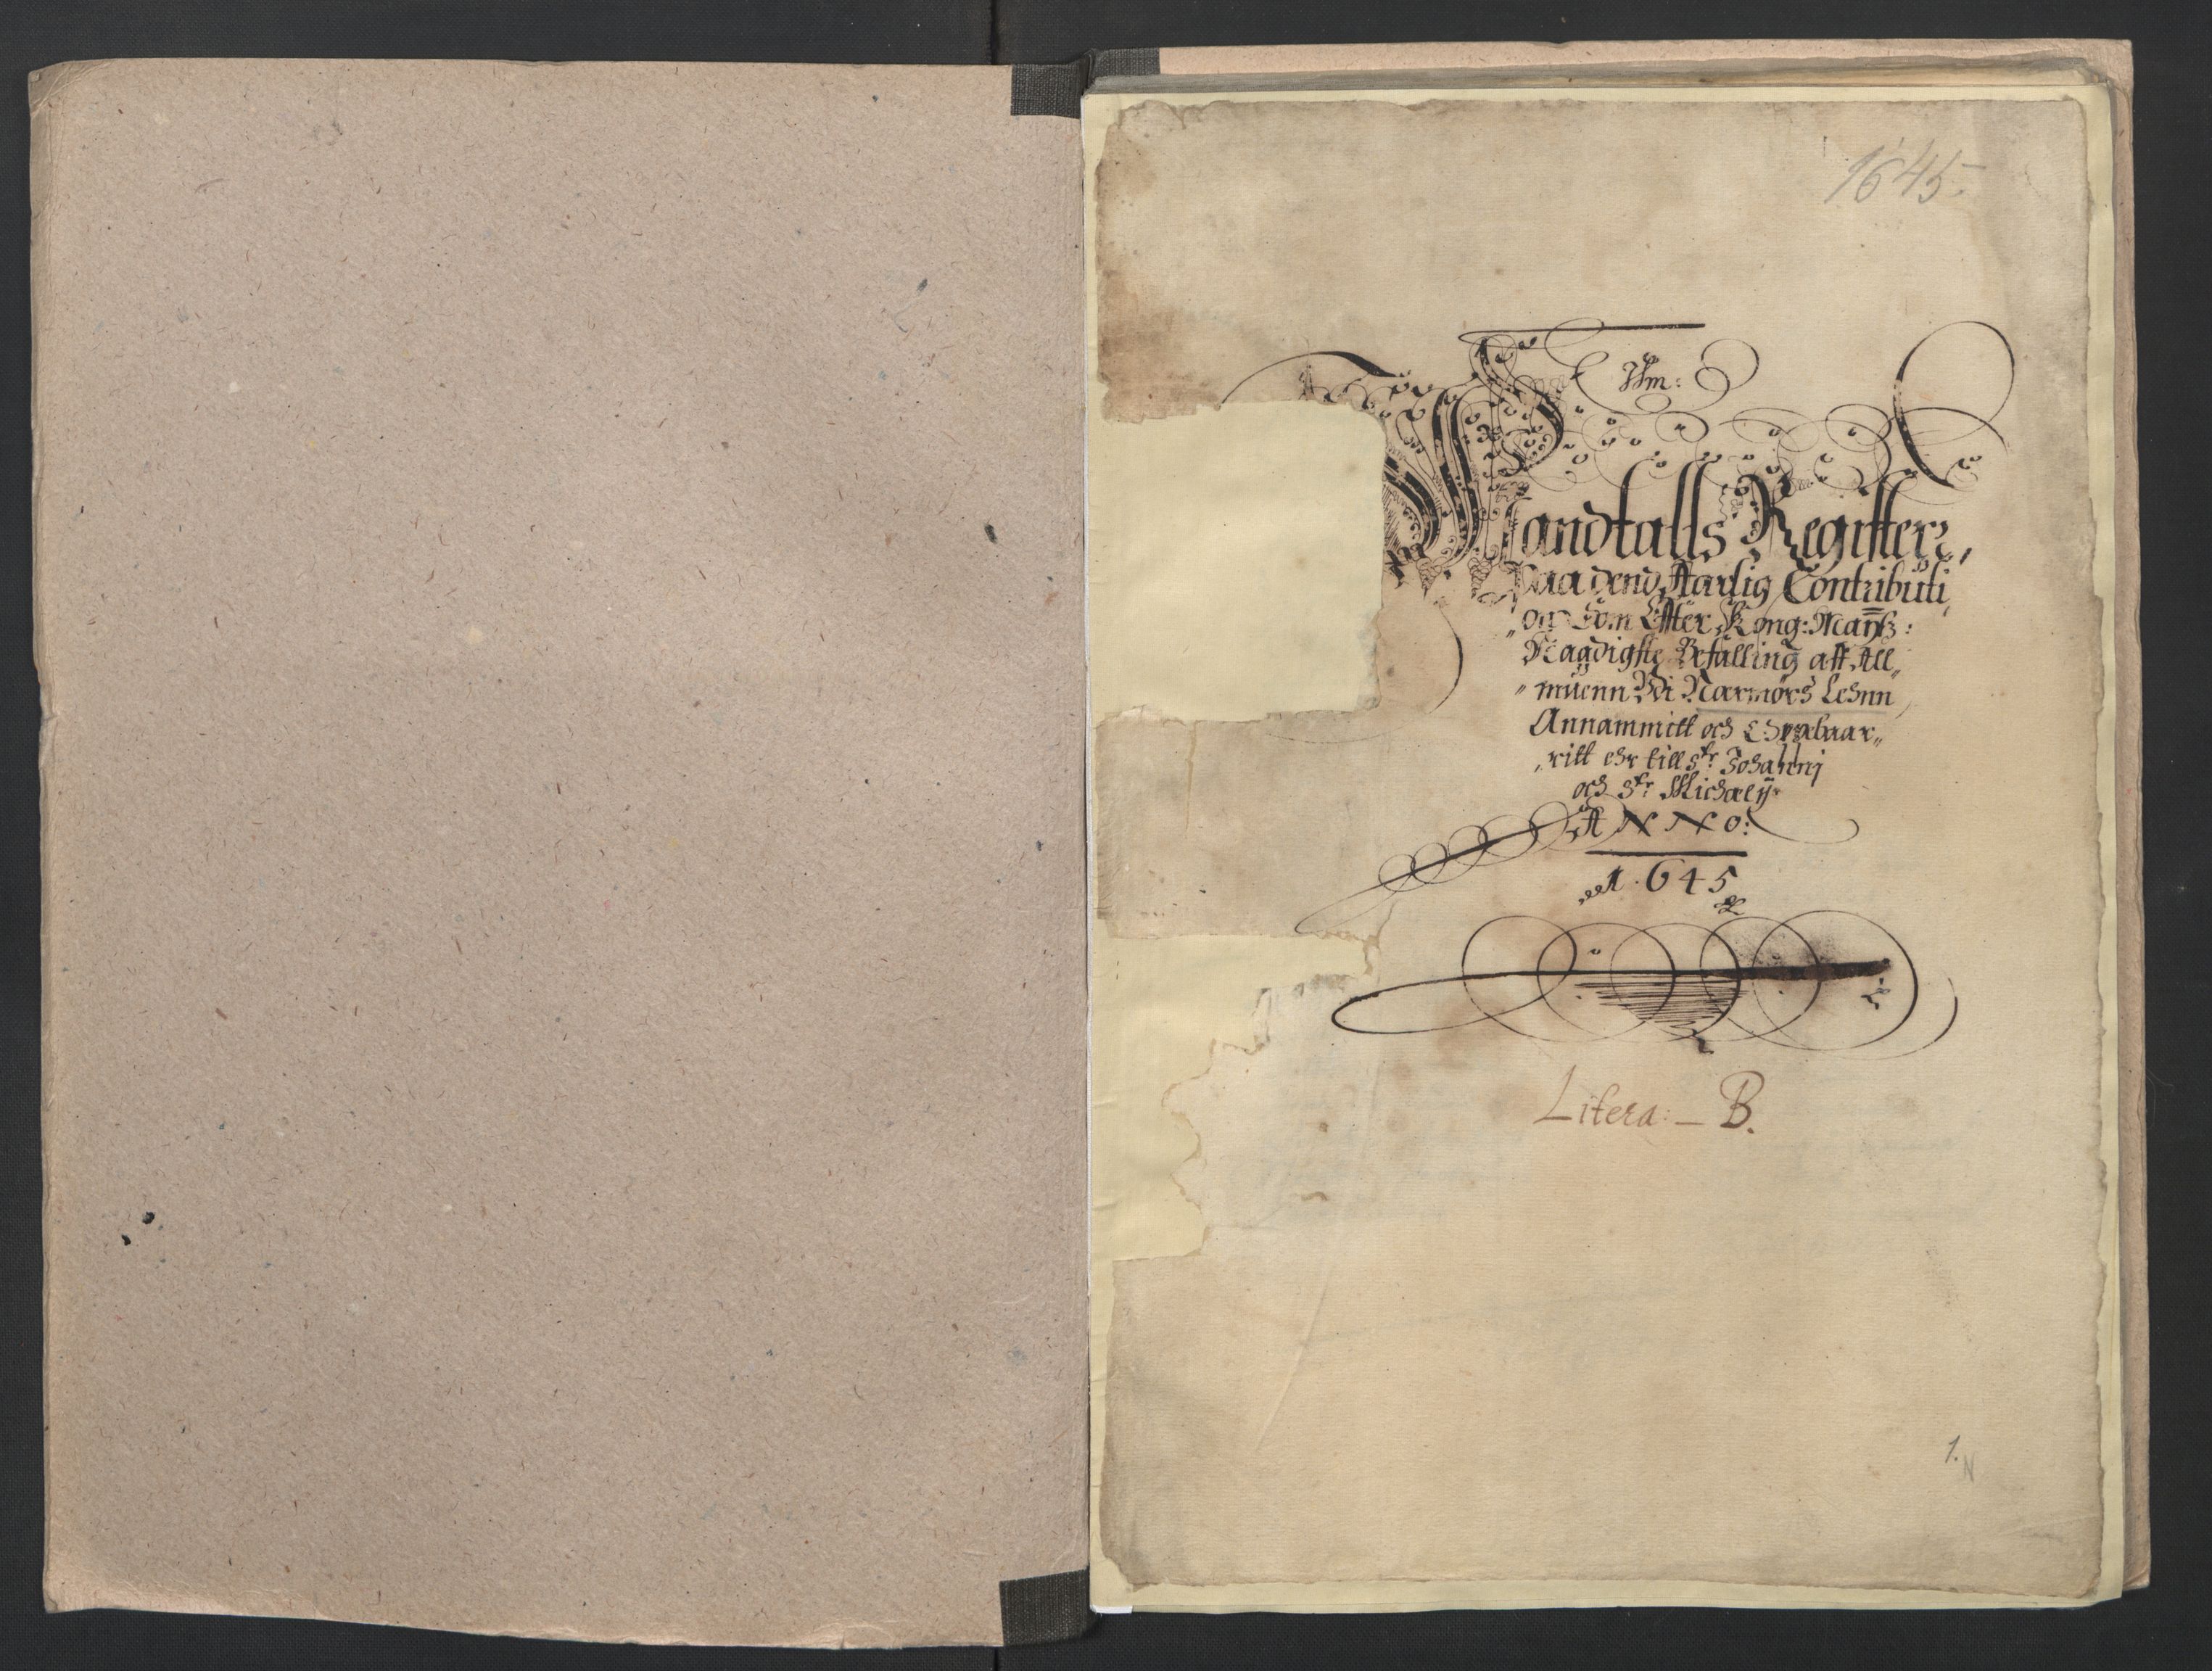 1645.
Mandtalls Register,
Paa dend Aarlig Contributi
on Som Effter Kong: Maÿtz:
Naadigste Befalling aff All
muenn Wdi Normørs Lehnn
Annammitt och Oppebaar
ritt ehr till Str: Johannj
och Str: Michaelÿ
ANNO:
1.645
Litera: B.
1.
N